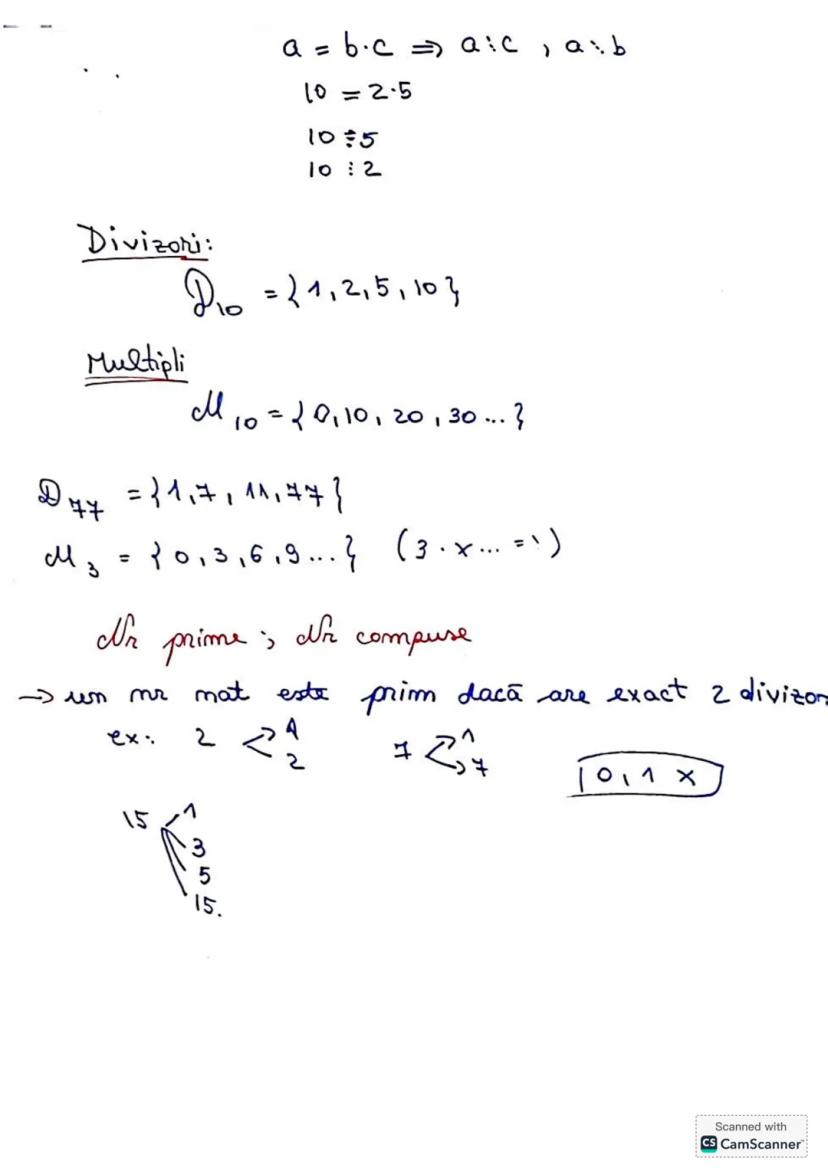 a = b·c ⇒ a⋮c , a⋮b
10 = 2·5
10 ⋮ 5
10 ⋮ 2
Divizori:
D₁₀ = {1, 2, 5, 10}
Multipli
M₁₀ = {0, 10, 20, 30 ... }
D₇₇ = {1, 7, 11, 77}
M₃ = {0, 3, 6, 9 ... } (3 · x ... = )
Nr prime ; Nr compuse
→ un nr nat este prim dacă are exact 2 divizor
ex: 2 1 7 1
2 7
0, 1 x
15 1
3
5
15.
Scanned with
CS CamScanner